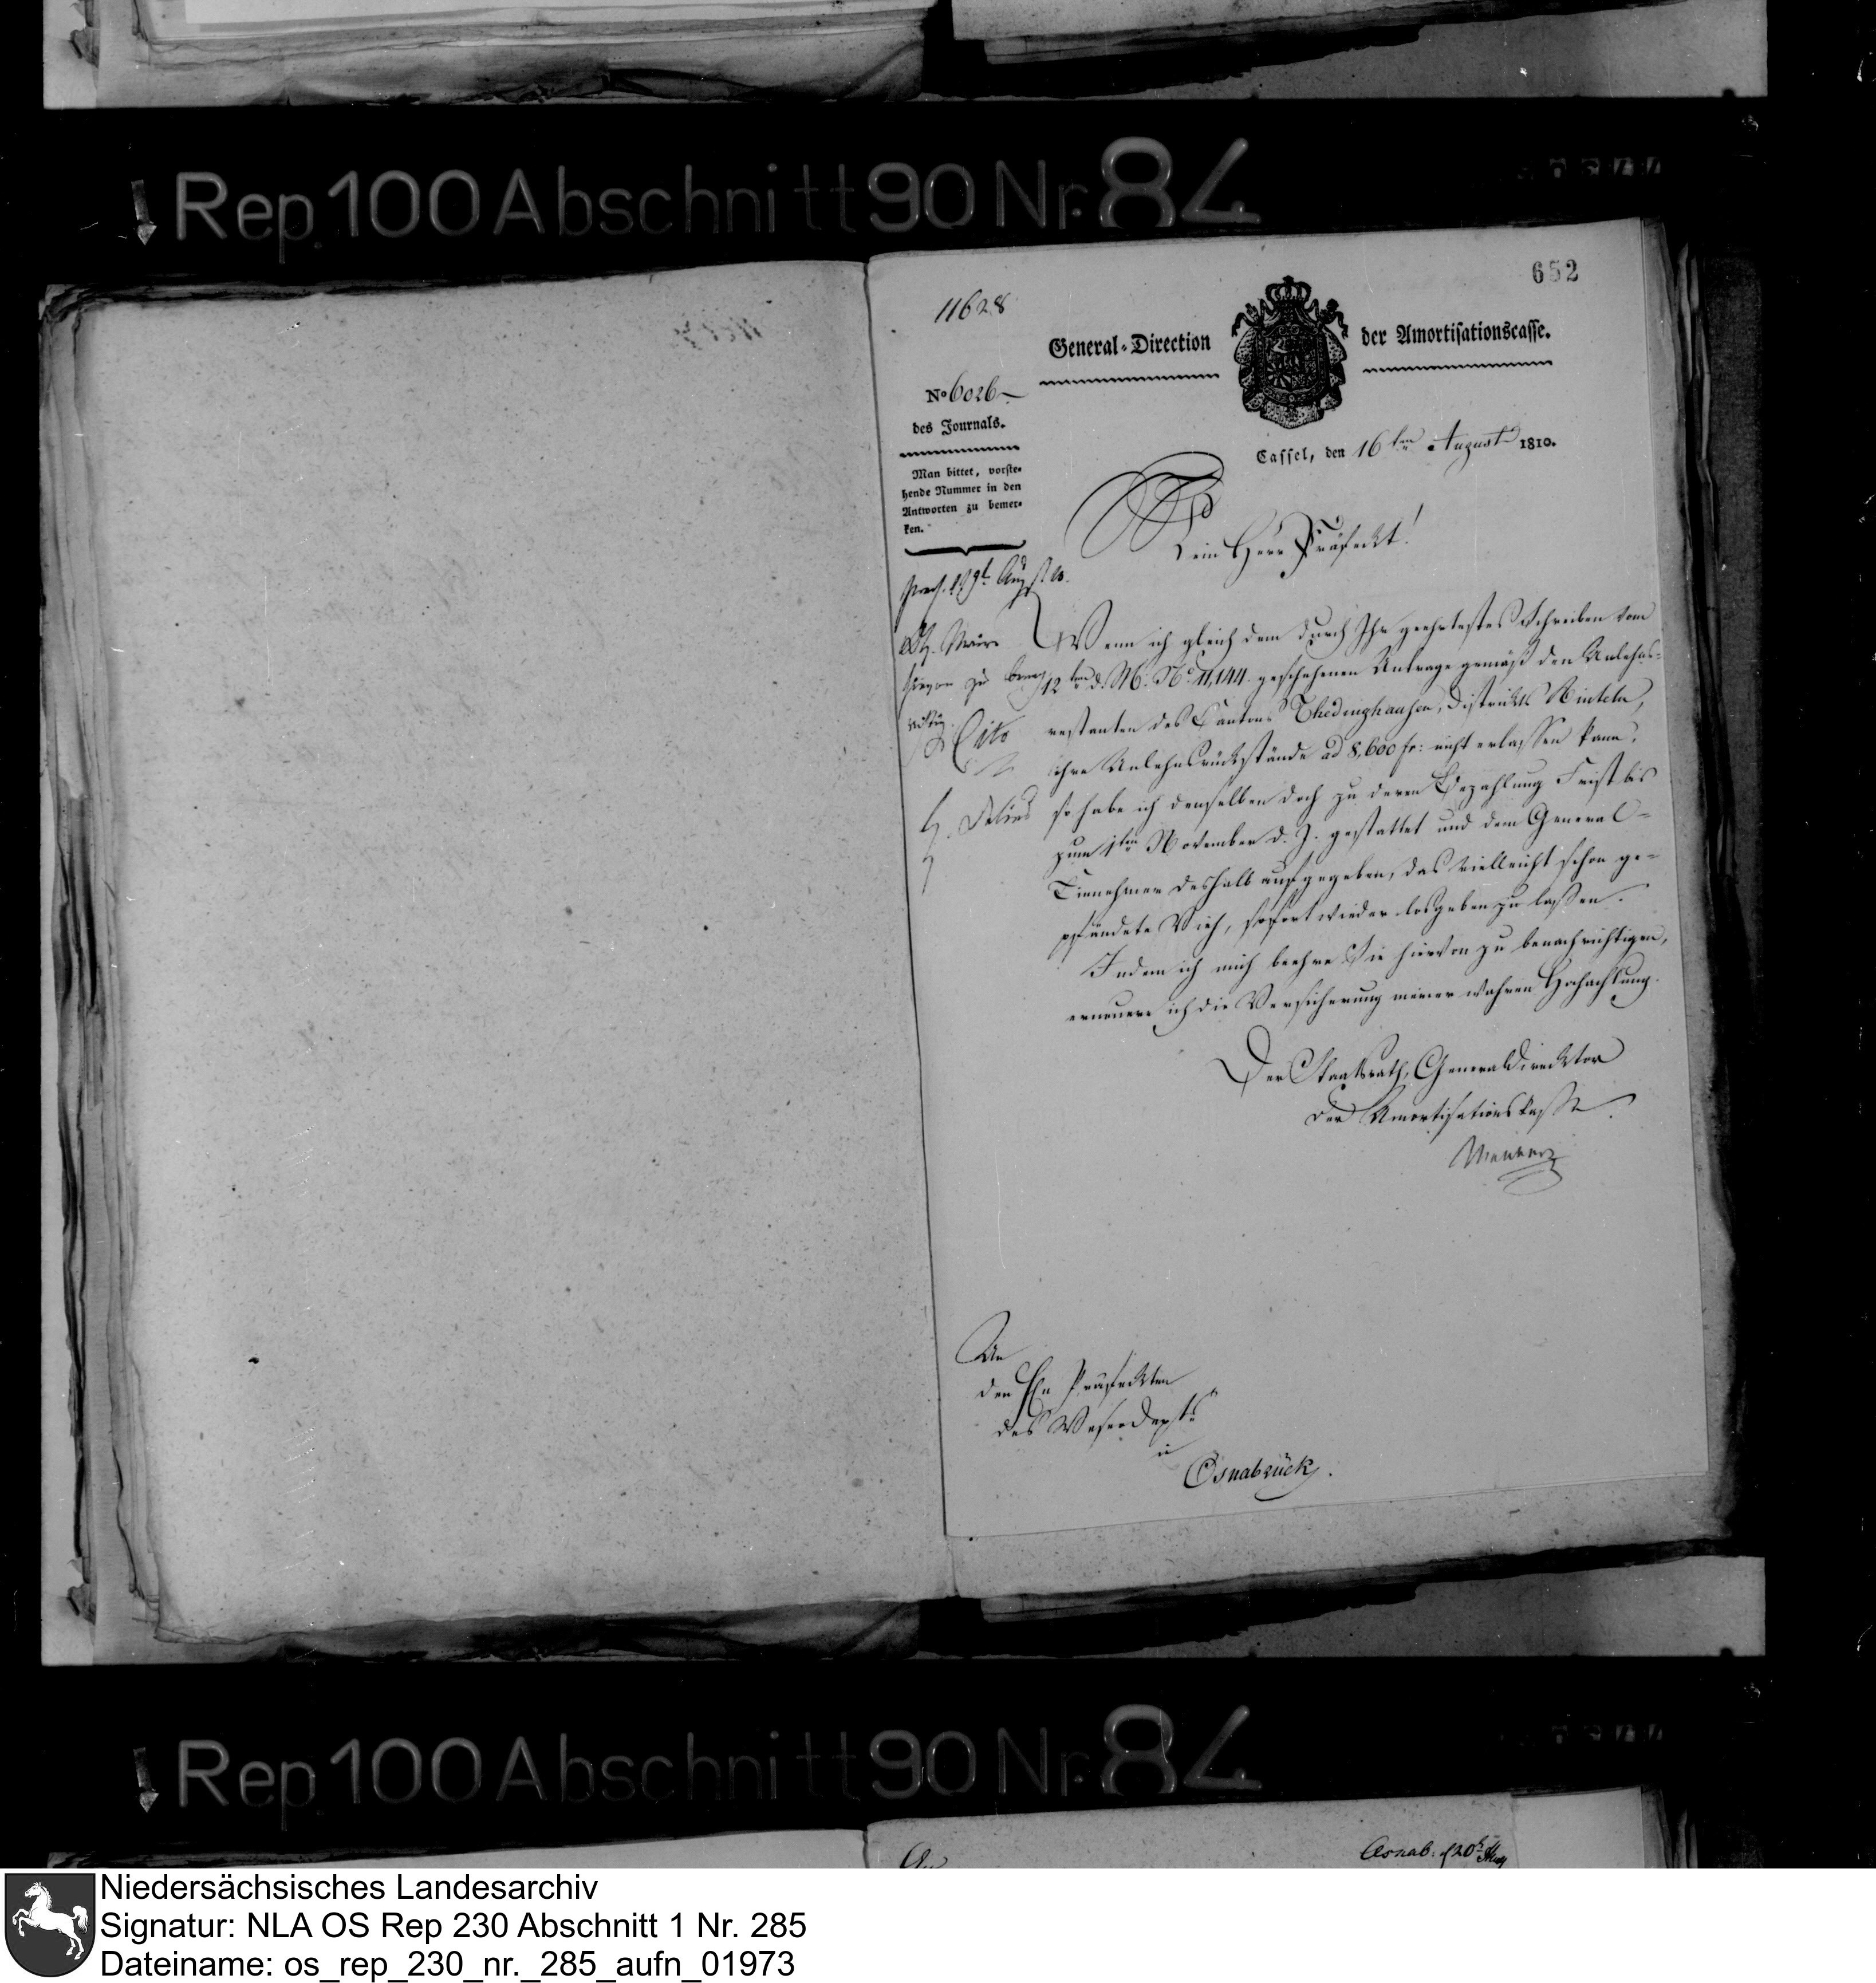 Rep 100 Abschnitt 90 Nr. 84
652
11628
General-Direction der Amortisationscasse.
No 6026
des Journals.
Man bittet, vorste-
hende Nummer in den
Antworten zu bemer-
ken.
Cassel, den 16ten August 1810.
Mein Herr Präfeckt!
praes. 19t. Aug. 10.
Wenn ich gleich dem durch Ihr geehrtestes Schreiben vom
12ten d. M. No 11,144. geschehenen Antrage gemäß den Anlehns-
restanten des Cantons Thedinghausen, Distrikts Rinteln,
ihre Anlehnsrückstände ad 8,600 fr: nicht erlassen kann,
so habe ich denselben doch zu deren Bezahlung Frist bis
zum 1ten November d. J. gestattet und dem General-
Einnehmer deshalb aufgegeben, das vielleicht schon ge-
pfändete Vieh, sofort wieder losgeben zu lassen.
Indem ich mich beehre Sie hiervon zu benachrichtigen,
erneuere ich die Versicherung meiner wahren Hochachtung.
H. Maire
hievon zu
Cito
H. Delius
Der Staatsrath, Generaldirecktor
der Amortisationskasse.
An
den Hn Präfeckten
des Weser Depts
in
Osnabrück.
Rep 100 Abschnitt 90 Nr. 84
An
Osnab: d 20t Aug
Niedersächsisches Landesarchiv
Signatur: NLA OS Rep 230 Abschnitt 1 Nr. 285
Dateiname: os_rep_230_nr._285_aufn_01973